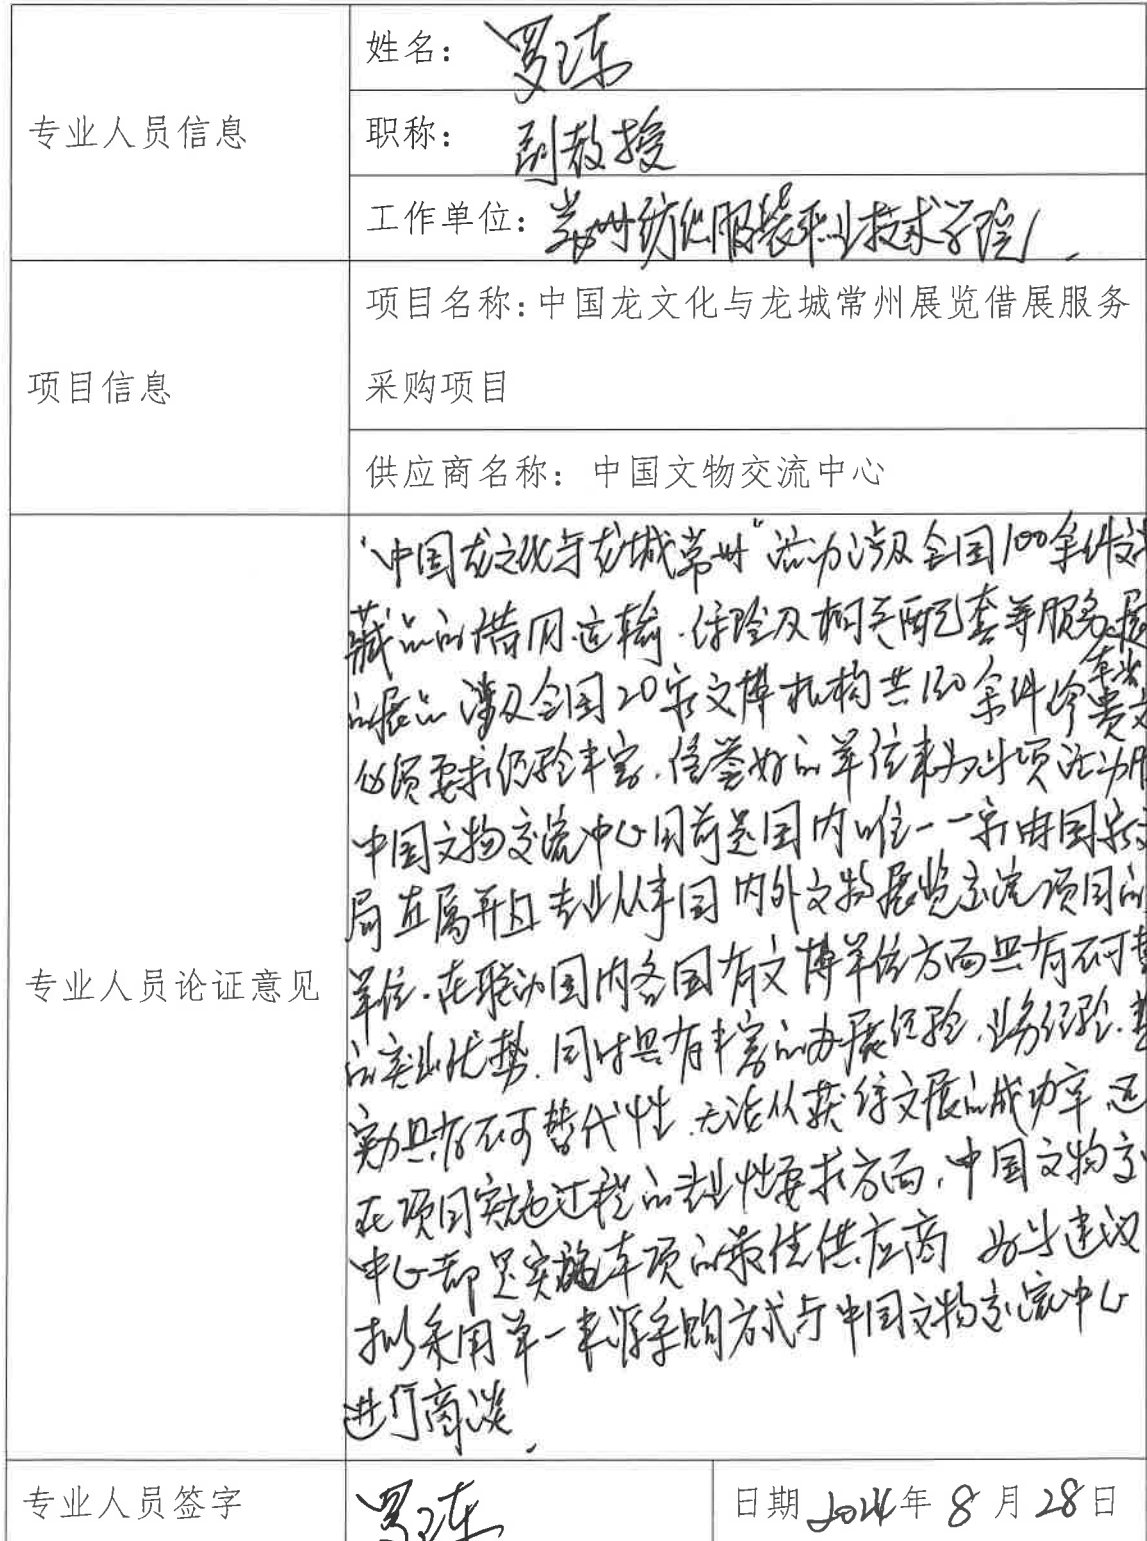 专业人员信息
姓名：
职称：副教授
工作单位：常州纺织服装职业技术学院
项目信息
项目名称：中国龙文化与龙城常州展览借展服务
采购项目
供应商名称：中国文物交流中心
专业人员论证意见
“中国龙文化与龙城常州”活动涉及全国100余件文
藏品的借用运输、保险及相关配套等服务
的展品涉及全国20家文博机构共150余件珍贵文
必须要求经验丰富、信誉好的单位来为此项活动
中国文物交流中心目前是国内唯一一家由国家
局直属并且专业从事国内外文物展览交流项目的
单位。在联动国内各国有文博单位方面具有不可替
的专业优势，同时具有丰富的办展经验、业务经验、
实力具有不可替代性，无论从获得文展的成功率，还
在项目实施过程的专业性要求方面，中国文物交
中心都是实施本项的最佳供应商 为此建议
拟采用单一来源采购方式与中国文物交流中心
进行商谈。
专业人员签字
日期 2024年8月28日